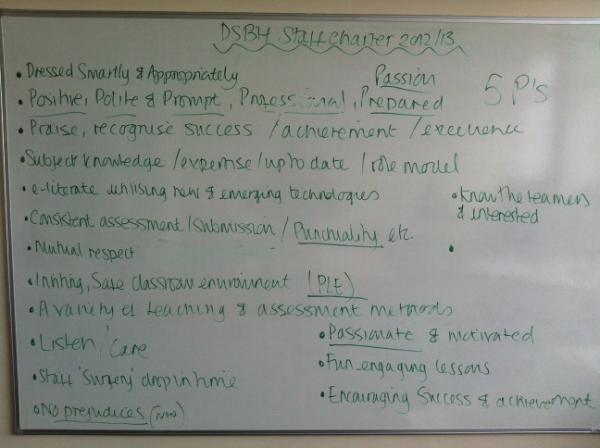 DSBH Staff Charter 2012/13
• Dressed Smartly & Appropriately
Passion
5 P's
• Positive, Polite & Prompt, Professional, Prepared
• Praise, recognise success / achievement / excellence
• Subject knowledge / expertise / up to date / role model
• e-literate utilising new & emerging technologies
• Know the learners & interested
• Consistent assessment / submission / Punctuality etc.
• Mutual respect
•
• Inviting, Safe classroom environment (PLE)
• A variety of teaching & assessment methods
• Listen / Care
• Passionate & motivated
• Staff 'Surgery' drop in time
• Fun engaging lessons
• No prejudices
• Encouraging Success & achievement